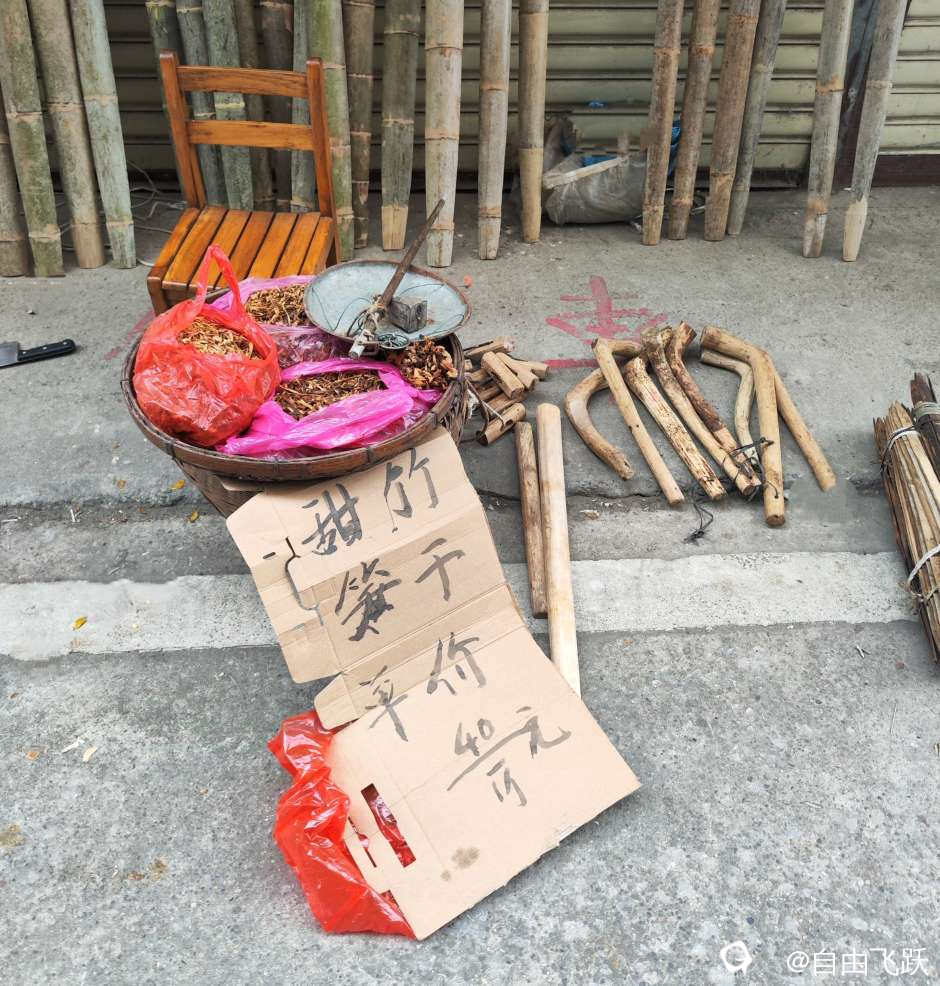 甜竹
笋干
单价
40元
斤
@自由飞跃